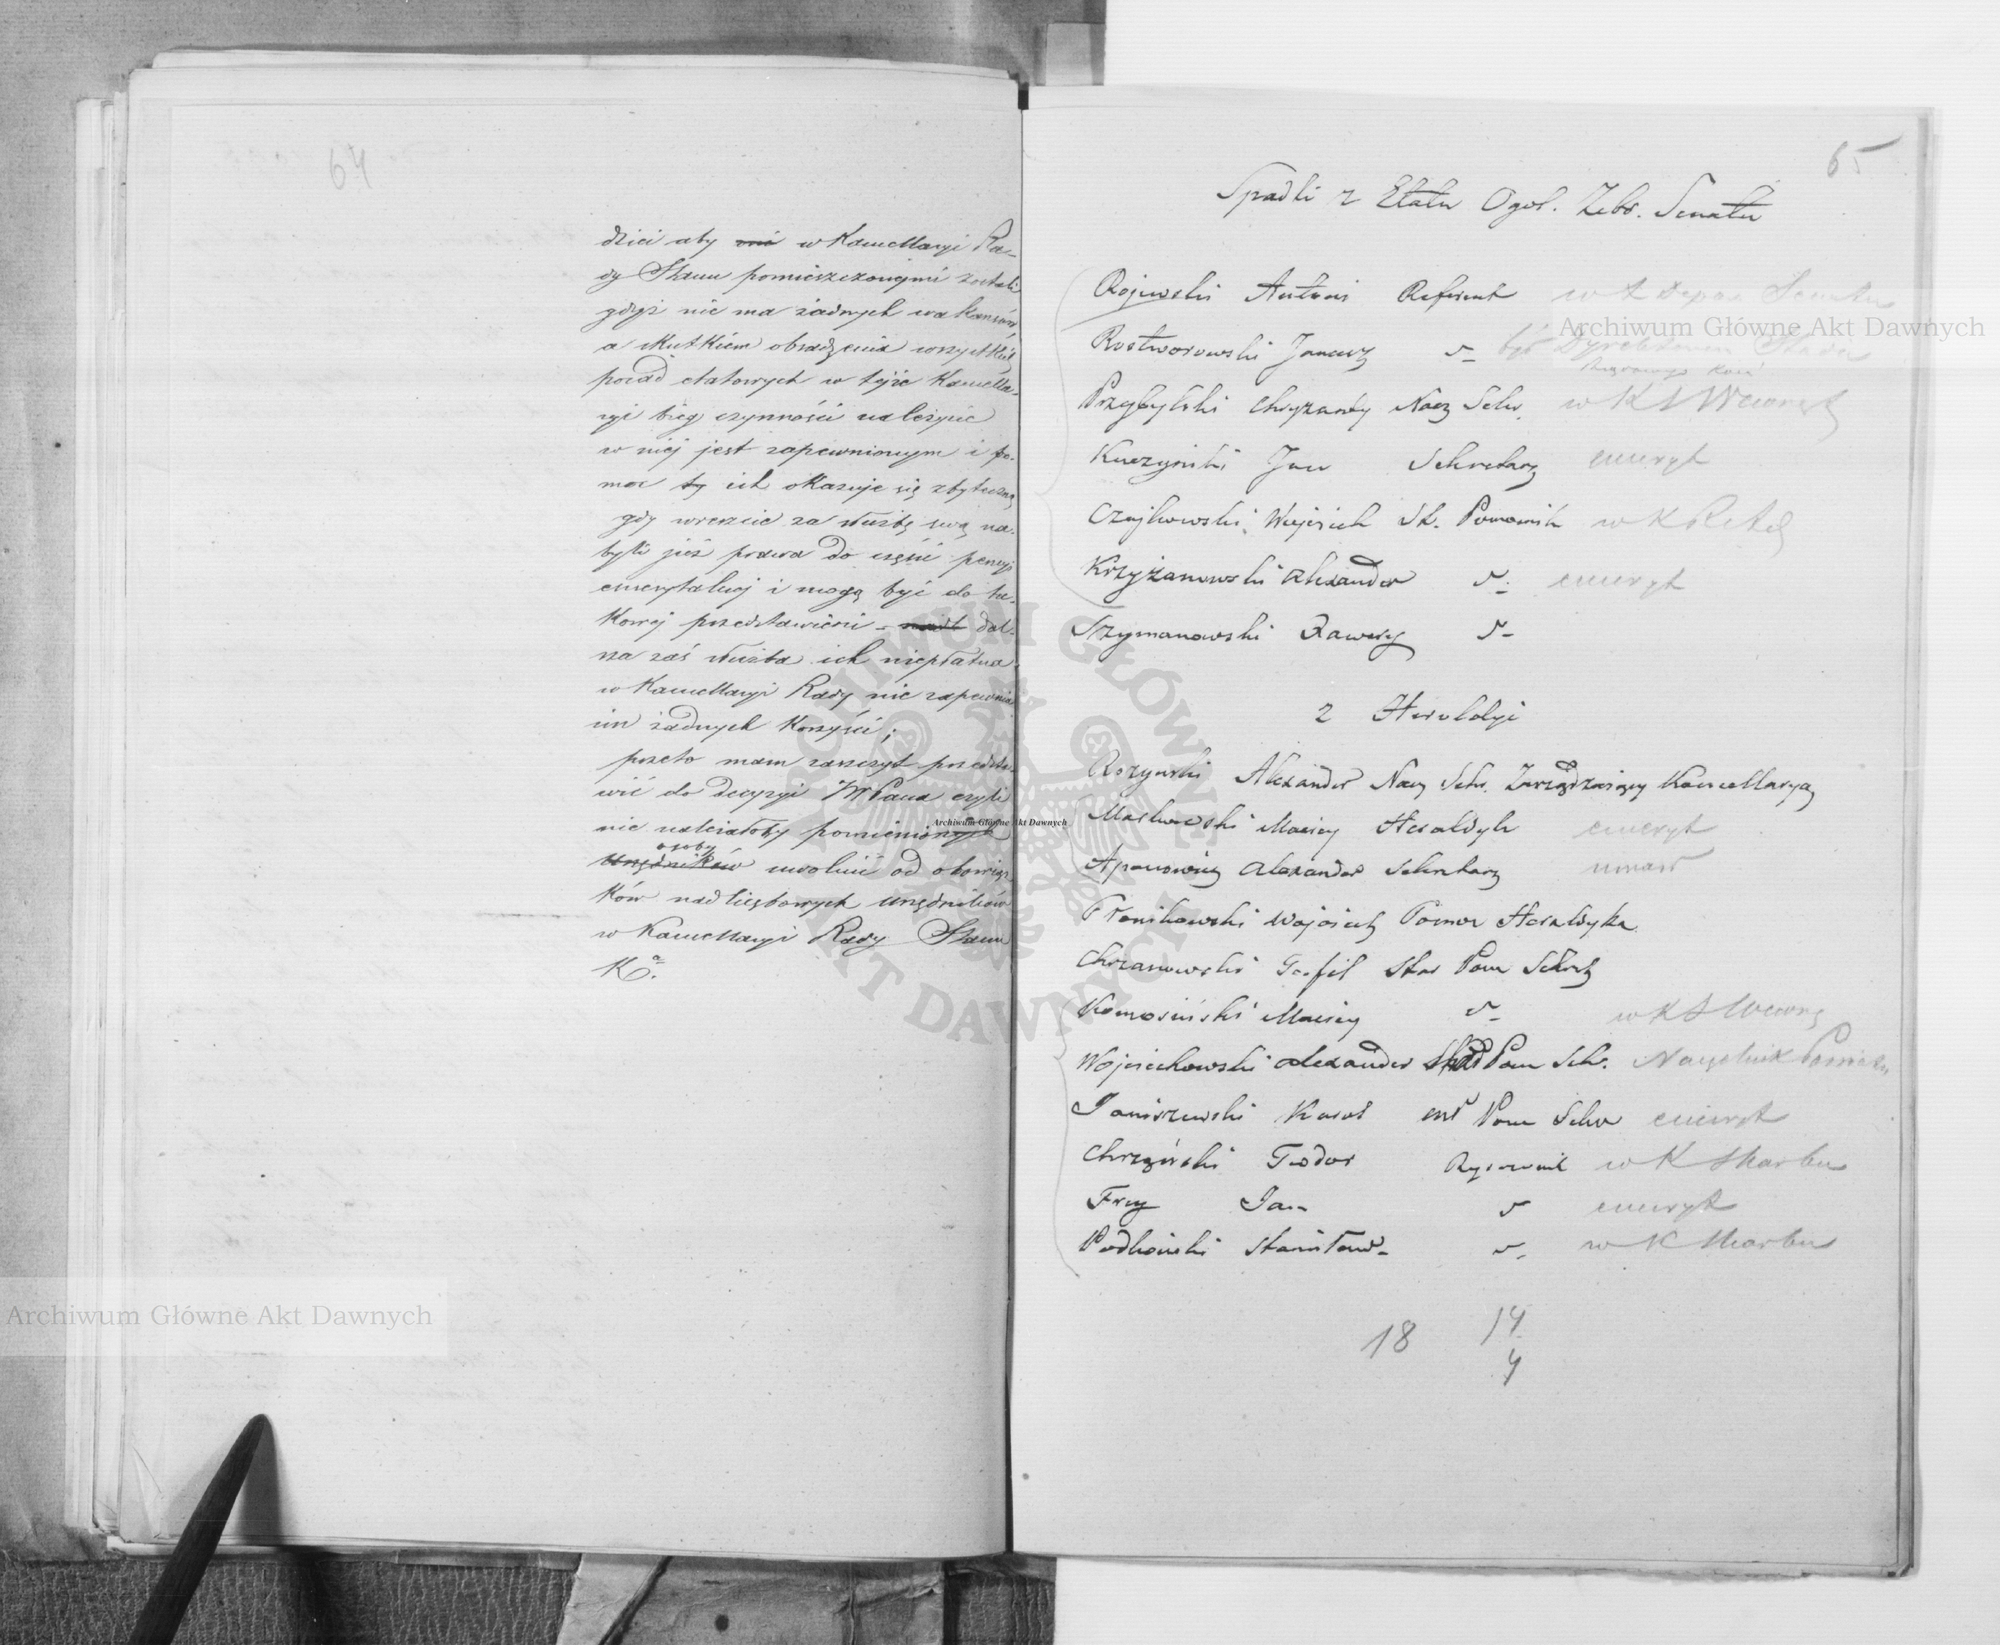 64
dzici aby w Kancellaryi Ra-
dy Stanu pomieszczonymi zostali
gdyż nie ma żadnych wakansów
a skutkiem obsadzenia wszystkich
posad etatowych w tejże Kancella-
ryi bieg czynności należycie
w niej jest zapewnionym i po-
moc ich okazuje się zbyteczną
gdy wreszcie za służbę swą na-
byli już prawa do części pensyi
emerytalnej i mogą być do ta-
kowej przedstawieni – dal-
sza zaś służba ich niepłatna
w Kancellaryi Rady nie zapewnia
im żadnych Korzyści;
przeto mam zaszczyt przedsta-
wić do decyzyi JWPana czyli
nie należałoby pomienionych
osoby
Urzędników uwolnić od obowiąz-
ków nadliczbowych urzędników
w Kancellaryi Rady Stanu
65
Spadli z Etatu Ogól. Zebr. Senatu
Rojewski Antoni Referent w Depar. Senatu
Rostworowski Janusz d- być Dyrektorem Stada
Przybylski Chryzanty Nacz Sekr. w K S Wewnęt
Kuczyński Jan Sekretarz emeryt
Czajkowski Wojciech St. Pomocnik w K
Krzyżanowski Alexander d- emeryt
Szymanowski Xawery d-
z Heroldyi
Rozyński Alexander Nacz Sekr. Zarządzający Kancellaryą
Maciej Heraldyk emeryt
Alexander Sekretarz umarł
Wojciech Pomoc Heraldyka
Chrzanowski Teofil Star Pom Sekret
Komosiński Maciej d- w K S Wewnę
Wojciechowski Alexander Pom Sek. Naczelnik Powiatu
Janiszewski Karol Pom Sekr emeryt
Chrząński Teodor Rysownik w K Skarbu
Frey Jan d emeryt
Podhoński Stanisław- d- w K Skarbu
18 14
4
Archiwum Główne Akt Dawnych
Archiwum Główne Akt Dawnych
Archiwum Główne Akt Dawnych
ARCHIWUM GŁÓWNE AKT DAWNYCH